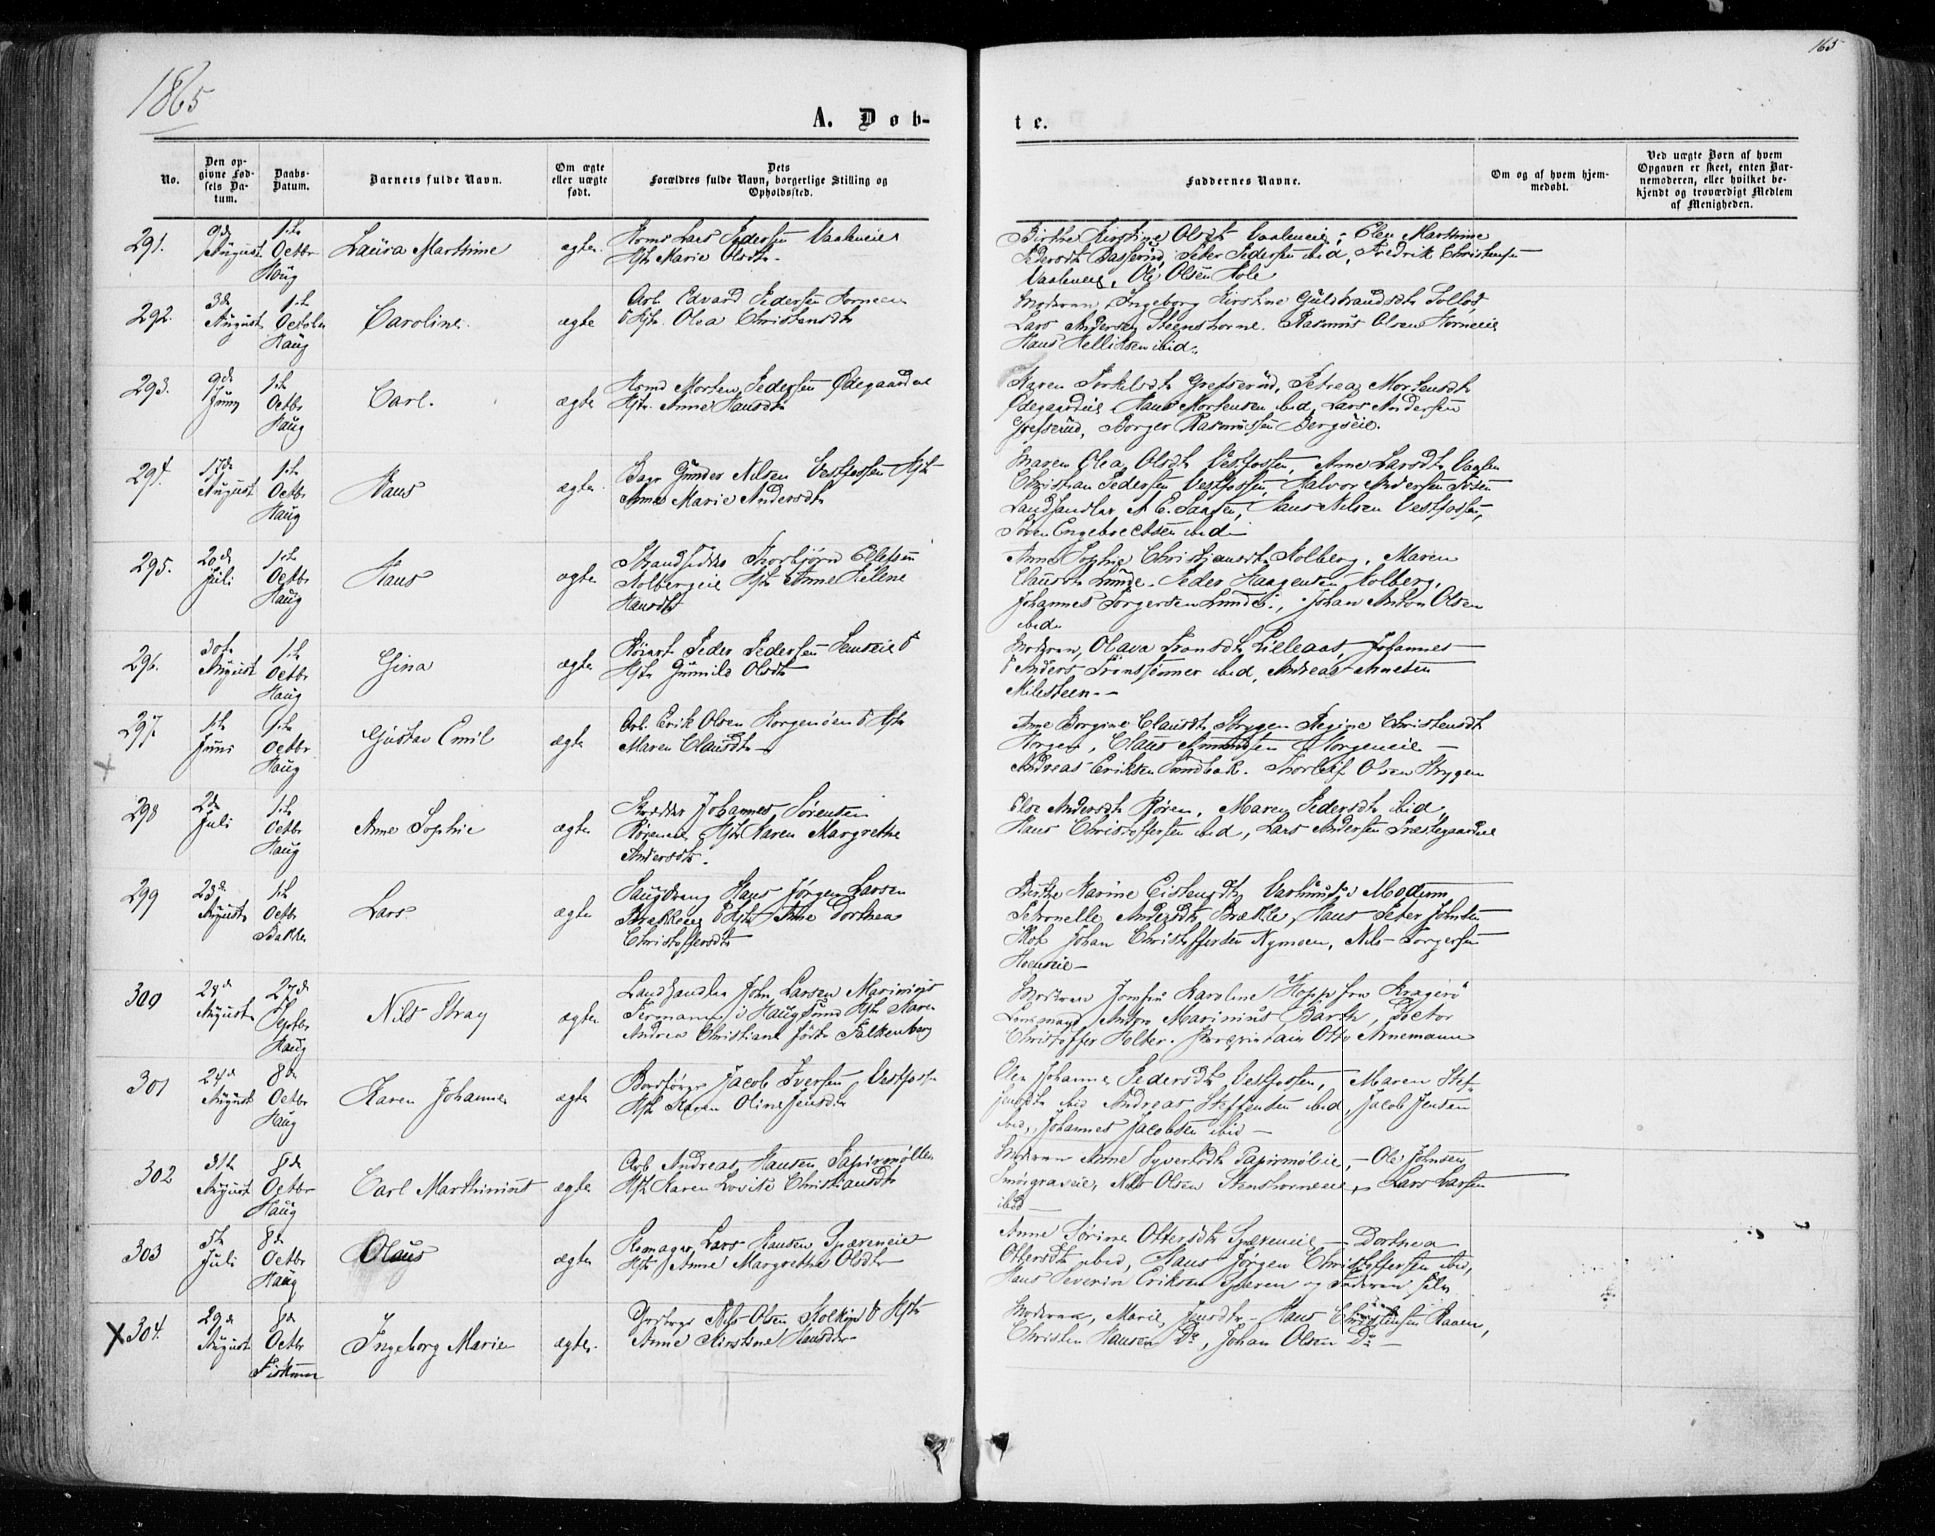 1865
165
A. Døb-
te.
No.
Den op-
givne Fød-
sels Da-
tum.
Daabs-
Datum.
Barnets fulde Navn.
Om ægte
eller uægte
født.
Dets
Forældres fulde Navn, borgerlige Stilling og
Opholdssted.
Faddernes Navne.
Om og af hvem hjem-
medøbt.
Ved uægte Børn af hvem
Opgaven er skeet, enten Bar-
nemoderen, eller hvilket be-
kjendt og troværdigt Medlem
af Menigheden.
291.
9de
August
1ste
Octbr
Haug
Laura Marthine
ægte
Lars Pedersen Vaaleneie
Hst Marie Olsdtr
Birthe Kirstine Olsdtr Vaaleneie, Elen Marthine
Pedersdtr Basserud, Peter Pedersen ibid, Fredrik Christensen
Vaaleneie, Ole Olsen Hole
292.
3de
August
1ste
October
Haug
Caroline
ægte
Arb. Edvard Pedersen Horneeie
& Hst. Olea Christensdtr
Moderen, Ingeborg Kirstine Guldbrandsdtr
Lars Andersen Steenshorne. Rasmus Olsen Horneeie
Hans Kelliksen ibid
293.
9de
Juny
1ste
Octbr
Haug
Carl.
ægte
Morten Pedersen Ødegaardeie
Hst. Anne Hansdtr
Karen Torkildsdtr Grefsrud, Petrea Mortensdtr
Ødegaardeie Hans Mortensen ibid, Lars Andersen
Grefsrud, Borger Rasmussen Bergseie.
294.
17de
August
1ste
Octbr
Haug
Hans
ægte
Bager Gunder Nilsen Vestfossen Hst
Anne Marie Andersdtr
Maren Olea Olsdtr Vestfossen, Anne Larsdtr
Christian Pedersen Vestfossen, Halvor Andersen
Landhandler A. E. Hans Nilsen Vestfossen,
Søren Engebretsen ibid
295.
20de
Juli
1ste
Octbr
Haug
Hans
ægte
Strandsidder Thorbjørn Ellefsen
Solbergeie Hst Anne Helene
Hansdtr
Anne Sophie Christiansdtr Solberg, Maren
Clausdtr Lunde. Peder Haagensen Solberg,
Johannes Torgersen Lunde, Johan Anton Olsen
ibid
296.
30te
August
1ste
Octbr
Haug
Gina
ægte
Peder Pedersen &
Hst Gunnild Olsdtr
Moderen, Olava Lilleaas, Johannes
& Anders ibid, Andreas Arnesen
Milesteen
297.
1ste
Juni
1ste
Octbr
Haug
Gustav Emil
ægte
Arb. Erik Olsen Horgenøen & Hst
Maren Clausdtr
Ane Borgine Clausdtr Strygen Regine Christensdtr
Horgen, Claus Amundsen Horgeneie
Andreas Eriksen Sundbak. Thorleif Olsen Strygen
298
2de
Juli
1ste
Octbr
Haug
Anne Sophie
ægte
Skrædder Johannes Sørensen
Hst Karen Margrethe
Andersdtr.
Else Andersdtr Røren, Maren Pedersdtr ibid,
Hans Christoffersen ibid, Lars Andersen Præstegaardeie
299
23de
August
1ste
Octbr
Bakke
Lars
ægte
Saugdreng Hans Jørgen Larsen
Brækkeeie & Hst Ane Dorthea
Christoffersdtr
Birthe Karine i Modum
Petronelle Andersdtr Brække, Hans Peter Johnsen
Hof Johan Christoffersen Nymoen, Nils Torgersen
Hoenseie
300
28de
August
27de
Septbr
Haug
Nils Stray
ægte
Landhandler John Larsen Marinius
Termann i Haugsund Hst Karen
Andrea Christiane født Falkenberg
Moderen Jomfru Karoline Hopp fra Kragerø
Lensmand Anton Marinius Barth, Doctor
Christoffer Holter. Otto Arnemann
301
24de
August
8de
Octbr
Haug
Karen Johanne
ægte
Jacob Iversen Vestfossen
Hst Karen Oline Jensdtr
Elen Johanne Pedersdtr Vestfossen, Maren Stef-
fensdtr ibid Andreas Steffensen ibid, Jacob Jensen
ibid, Johannes Jacobsen ibid
302
31te
August
8de
Octbr
Haug
Carl Marthinius
ægte
Arb Andreas Hansen Papirmøllen
Hst Karen Lovise Christiansdtr
Moderen Anne Syvertsdtr Papirmøleie, Ole Johnsen
Smørgraveie, Nils Olsen Stenshorneeie, Lars Larsen
ibid
303
5te
Juli
8de
Octbr
Haug
Olaus
ægte
Lars Hansen Spæreneie
Hst Anne Margrethe Olsdtr
Anne Sørine Ottersdtr Spæreneie, Dorthea
Ottersdtr ibid, Hans Jørgen Christoffersen ibid,
Hans Severin Eriksen Spæren og Faderen selv
X 304.
29de
August
8de
Octbr
Fiskum
Ingeborg Marie
ægte.
Nils Olsen Kolkin & Hst
Anne Kirstine Hansdtr
Moderen, Marie Jensdtr, Hans Christensen Raaen,
Christen Hansen Do, Johan Olsen Do